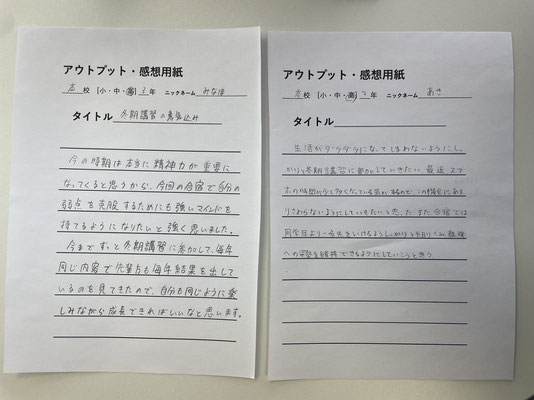 アウトプット・感想用紙
本校 [小・中・高] 3年 ニックネーム みなほ
タイトル 冬期講習の意気込み
今の時期は本当に精神力が重要に
なってくると思うから、今回の合宿で自分の
弱点を克服するためにも強いマインドを
持てるようになりたいと強く思いました。
今までずっと冬期講習に参加して、毎年
同じ内容で先輩方も毎年結果を出して
いるのを見てきたので、自分も同じように楽
しみながら成長できればいいなと思います。
アウトプット・感想用紙
本校 [小・中・高] 年 ニックネーム あさ
タイトル
生活がダラダラになってしまわないようにし、
冬期講習に参加していきたい。最近、スマ
ホの時間が少し多くなっている気がするので、この機会にあま
りさわらないようにしていきたいと思った。また、合宿では
同学年より一歩先をいけるようしっかりと取りくみ、勉強
への姿勢を維持できるようにしていこうと思う。